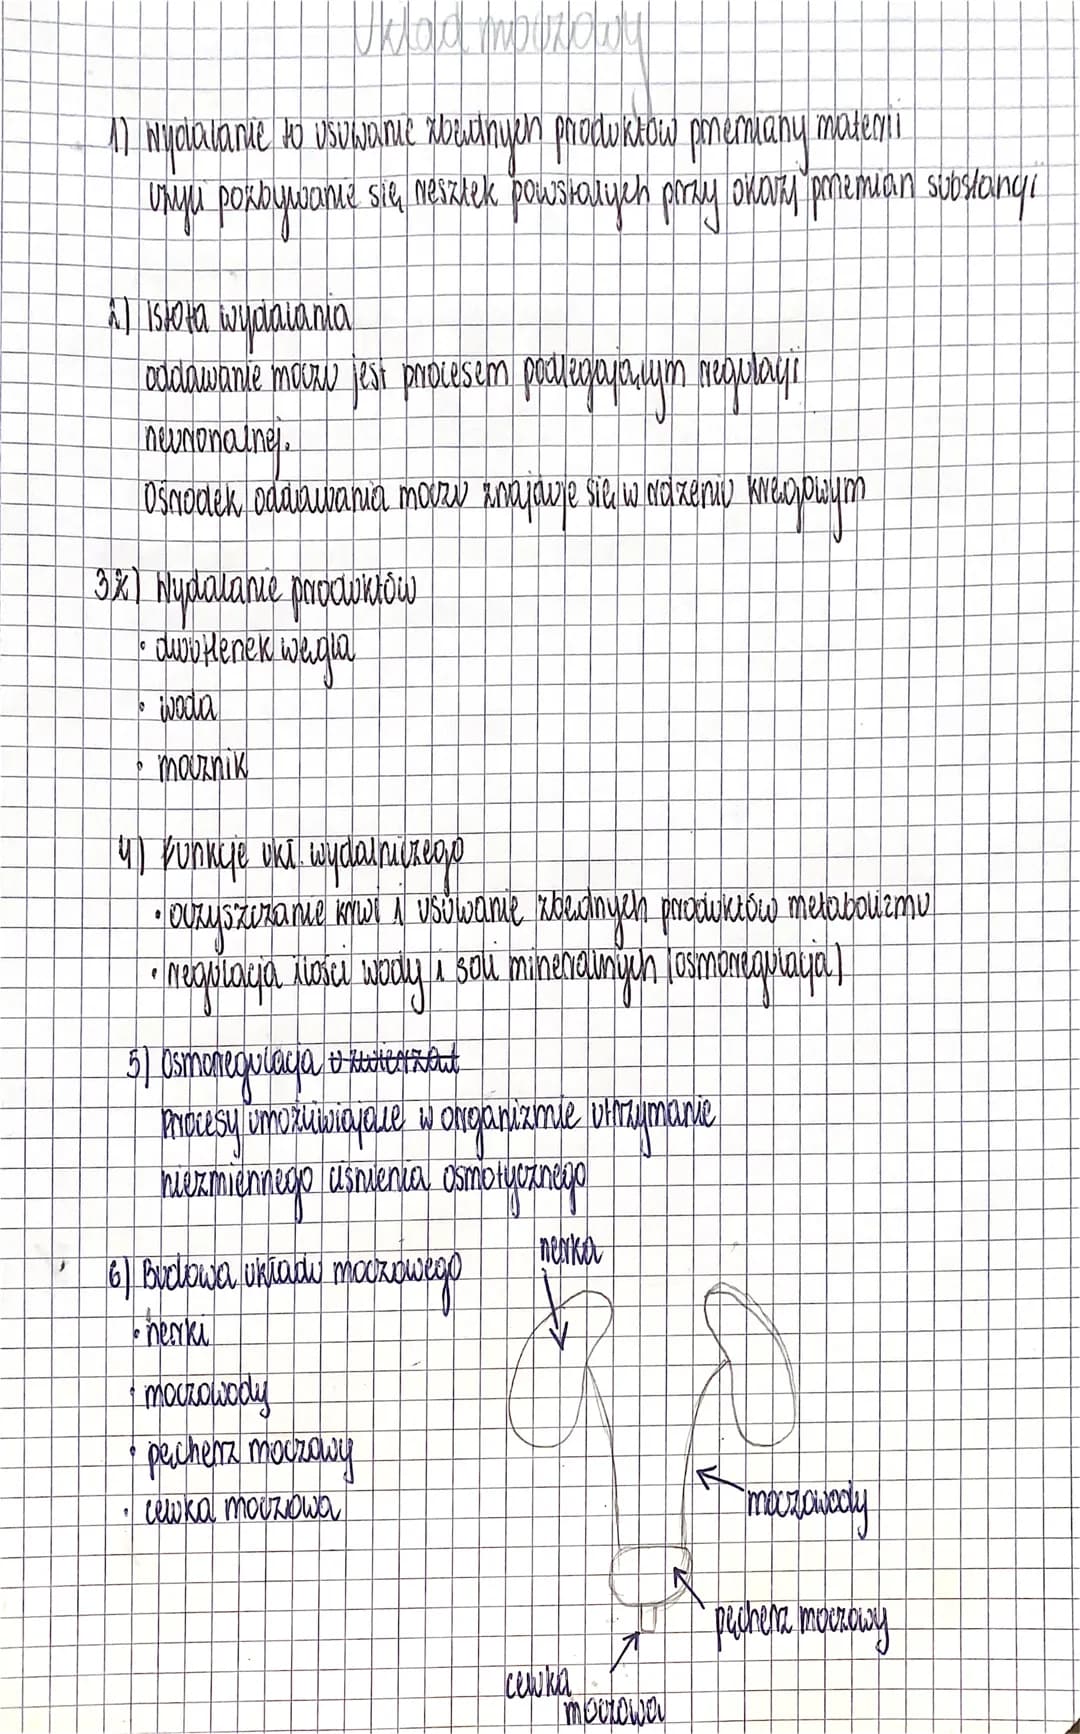 Układ moczowy
1) Wydalanie to usuwanie zbędnych produktów przemiany materii
czyli pozbywanie się resztek powstałych przy okazji przemian substancji
2) Istota wydalania
oddawanie moczu jest procesem podlegającym regulacji
neuronalnej.
Ośrodek oddawania moczu znajduje się w rdzeniu kręgowym
3) Wydalanie produktów
• dwutlenek węgla
• woda
• mocznik
4) Funkcje ukł. wydalniczego
• oczyszczanie krwi i usuwanie zbędnych produktów metabolizmu
• regulacja ilości wody i soli mineralnych (osmoregulacja)
5) Osmoregulacja u zwierząt
procesy umożliwiające w organizmie utrzymanie
niezmiennego ciśnienia osmotycznego
6) Budowa układu moczowego
• nerki
• moczowody
• pęcherz moczowy
• cewka moczowa
nerka
moczowody
pęcherz moczowy
cewka
moczowa